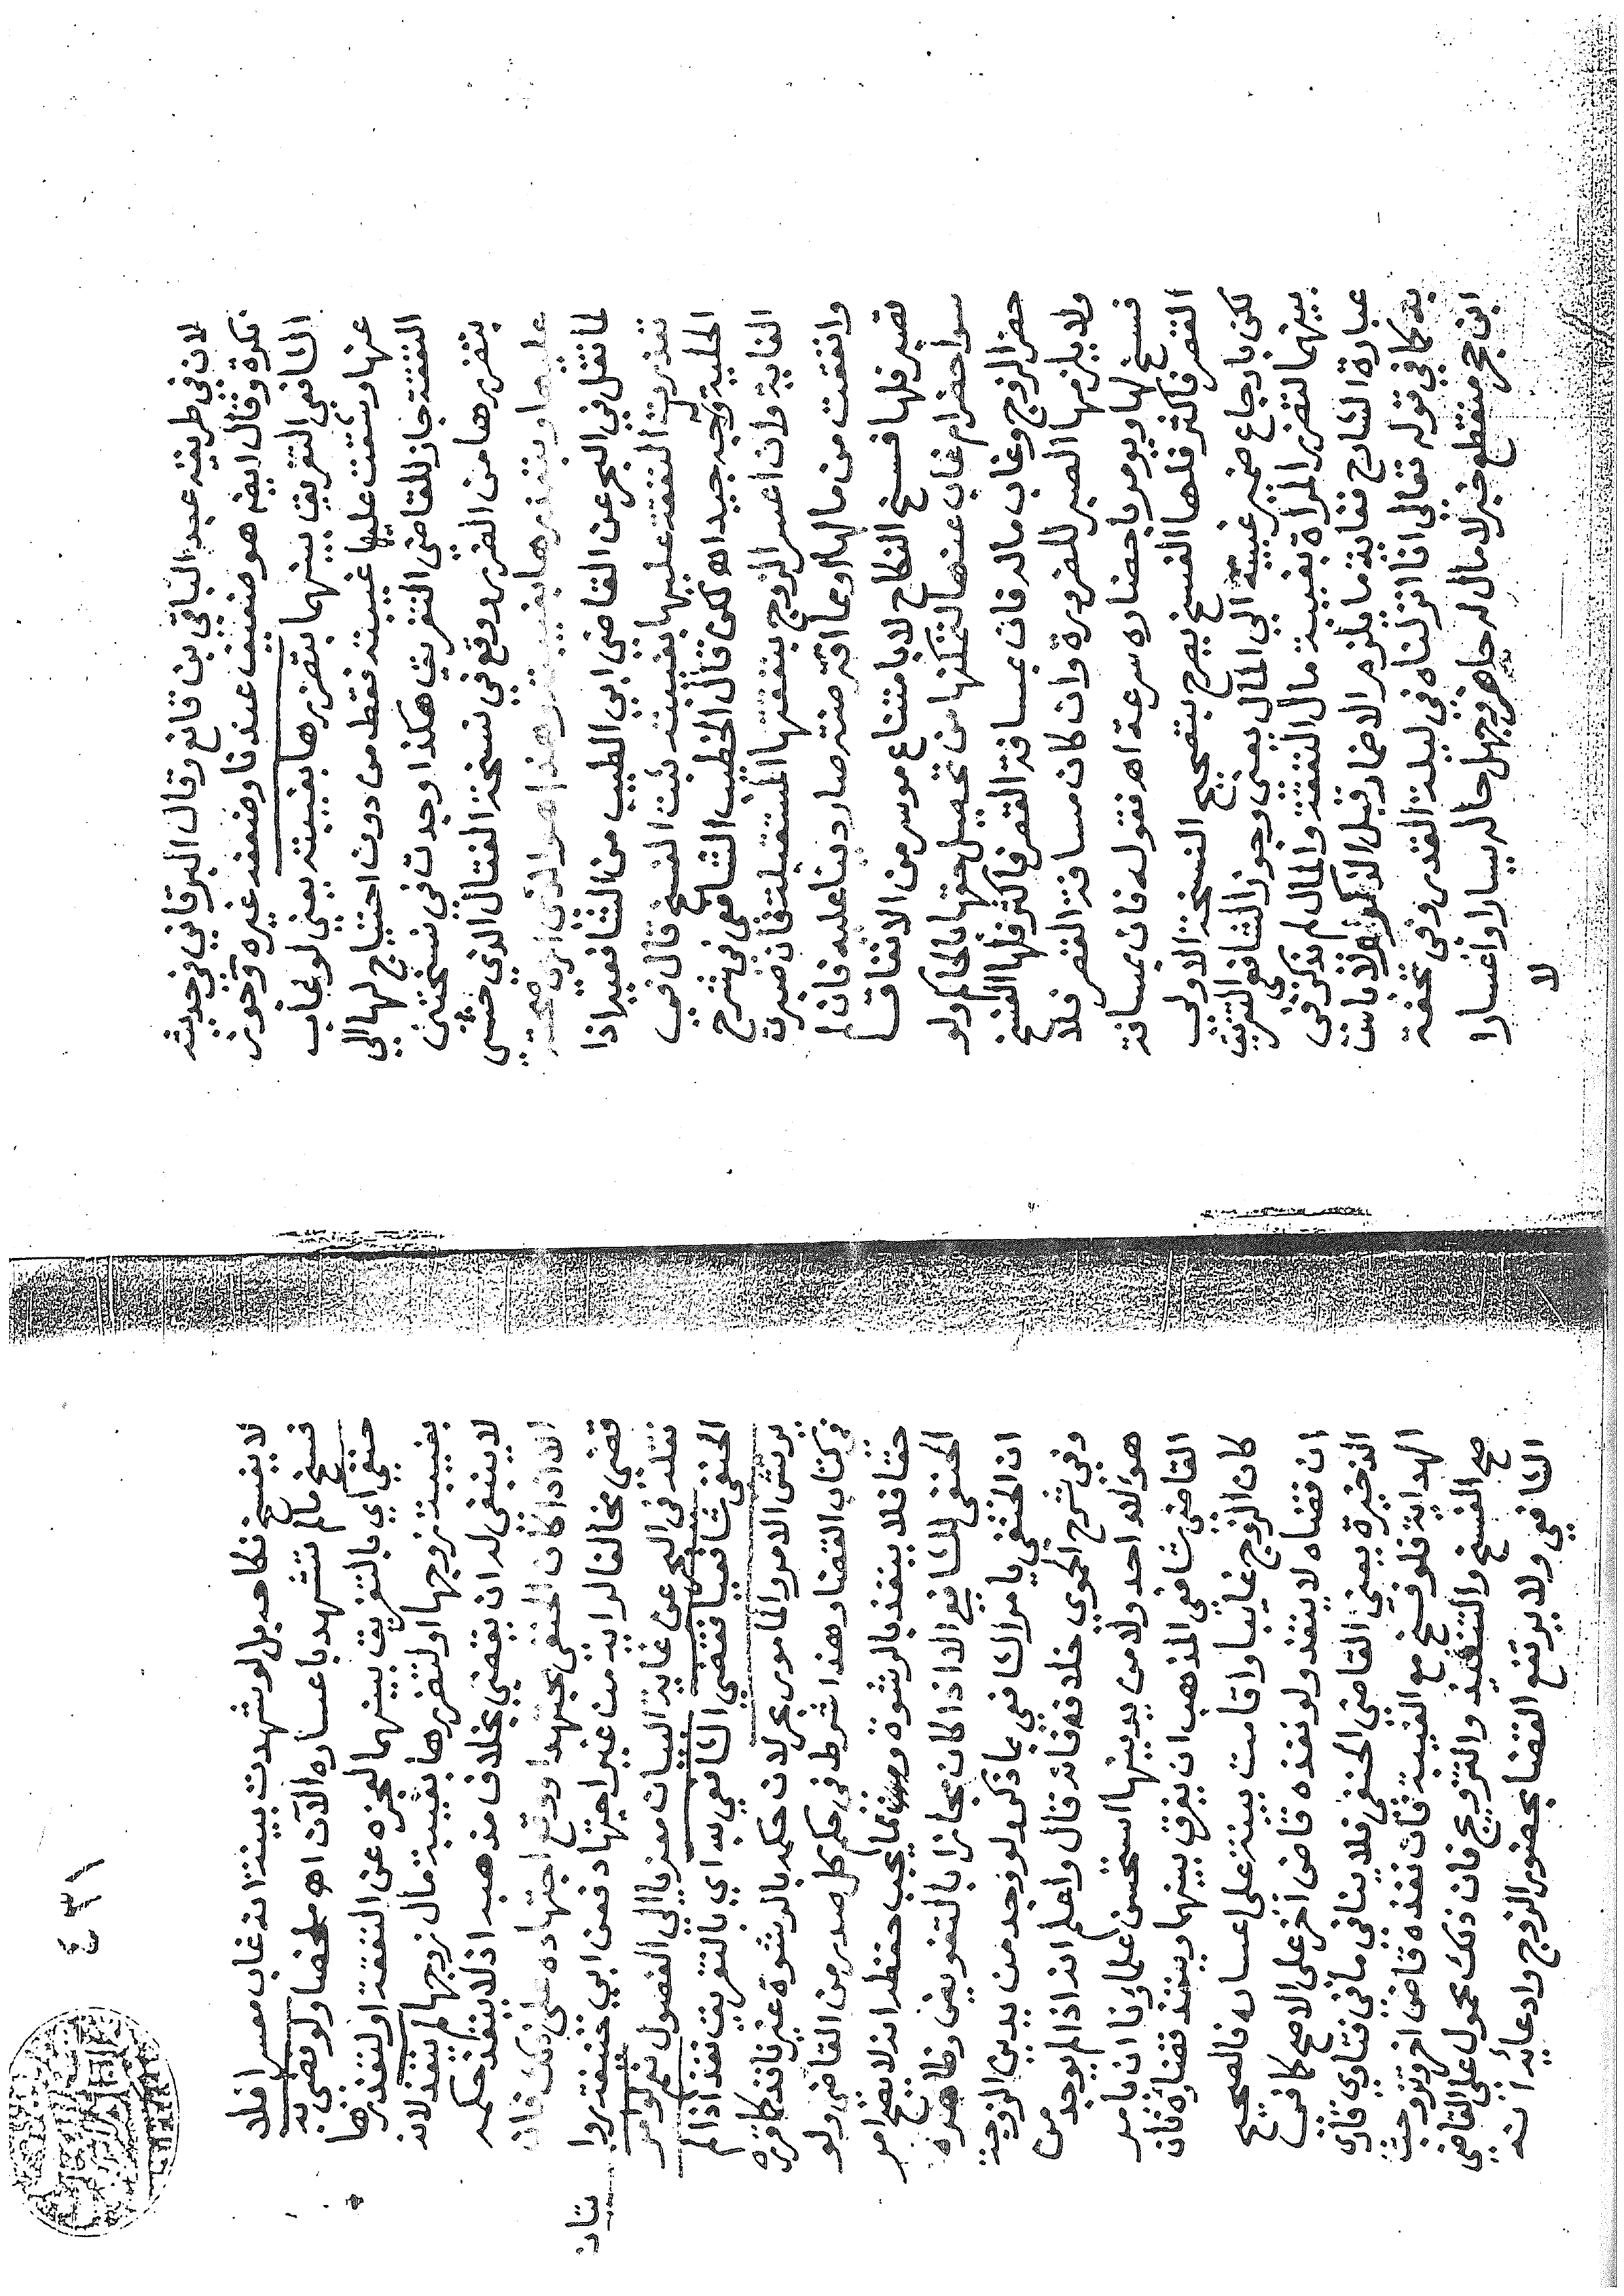 لان في طريقه عبد الباقي بن قانع وقال البرقاني في حديثه
نكرة وقال ايضا هو ضعيف عندنا وضعفه غيره وجوز
الشافعي التفريق بينهما بتضررها بغيبته يعني لو غاب
عنها وشقت عليها غيبته فقط من دون احتياج لها الي
النفقة جاز للقاضي التفريق هكذا وجدت في نسختين
بتضررها من الضرر ووقع في نسخة الفتال الذي حشي
عليها وبتعذرها بغيبته وهذا هو الذي ارى صحته
لما نقل في البحر عن القاضي ابي الطيب من الشافعية اذا
تعذرت النفقة عليها بغيبته ثبت الفسخ قال في
الحلية وجه جيد اه لكن قال الخطيب الشافعي في شرح
الغاية وان اعسر الزوج بنفقتها المستقبلة فان صبرت
وانفقت من مالها او مما اقترضته صار دينا عليه فان لم
تصبر فلها فسخ النكاح لا بامتناع موسر من الانفاق
سوا حضر ام غاب عنها لتمكنها من تحصيل حقها بالحاكم ولو
حضر الزوج وغاب ماله فان بمسافة القصر فاكثر فلها الفسخ
ولا يلزمها الصبر للضرورة وان كان مسافة القصر فلا
فسخ لها ويومر باحضاره سرعة اه فقوله فان بمسافة
القصر فاكثر فلها الفسخ يصرح بتصحيح النسخة الاولى
لكن بارجاع ضمير غيبته الي المال يعني وجوز الشافعي التفريق
بينهما لتضرر المرأة بغيبة مال النفقة والمال لم يذكر في
عبارة الشارح فغاية ما يلزم الاضمار قبل الذكر ولا باس
به كما في قوله تعالى انا انزلناه في ليلة القدر وفي تحفة
ابن حجر منقطع خبر لا مال له حاضر وجهل حاله يسارا واعسارا
لا
٤٣١
لا يفسخ نكاحه بل لو شهدت بينة انه غاب معسرا فلا
فسخ مالم تشهد باعساره الآن اه ملخصا ولو قضى به
حنفي اي بالتفريق بينهما لعجزه عن النفقة او لتعذرها
بغيبة زوجها او لتضررها بغيبة مال زوجها لم ينفذ لانه
لا ينبغي له ان يقضي بخلاف مذهبه اذ لا ينفذ حكمه
الا اذا كان الحنفي مجتهدا ووقع اجتهاده على ذلك فان
قضى مخالفا لرايه من غير اجتهاد فعن ابي حنيفة روايتان
نقله في البحر عن غاية البيان معزيا الي الفصول نعم لو امر
الحنفي شافعيا فقضي الشافعي به اي بالتفريق نفذ اذا لم
يرتش الامر والمامور بحر لان حكمه بالرشوة غير نافذ كما مره
في كتاب القضا وهذا شرط في حكم كل صدر من القاضي ولو
حقا فلا ينفذ بالرشوة ومما يجب حفظه انه لا يصح امر
الحنفي للشافعي الا اذا كان مجازا بالتفويض وظاهره
ان الحنفي يامر الشافعي بما ذكر ولو وجد من يدين الزوجة
وفي شرح الحموي خلافه فانه قال واعلم انه اذا لم يوجد من
هؤلاء احد ولا من يدينها استحسن علماؤنا ان يامر
القاضي شافعي المذهب ان يفرق بينهما وينفذ قضاؤه فان
كان الزوج غايبا واقامت بينة على اعساره فالصحيح
ان قضاه لا ينفذ ولو نفذه قاض آخر على الاصح كما في
الذخيرة يعني القاضي الحنفي فلا ينافي ما في فتاوي قاري
الهداية فلو فسخ مع الغيبة فان نفذه قاض اخر وتزوجت
صح الفسخ والتنفيذ والتزويج فان ذلك محمول علي القاضي
الشافعي ولا يرتفع القضا بحضور الزوج وادعائه انه